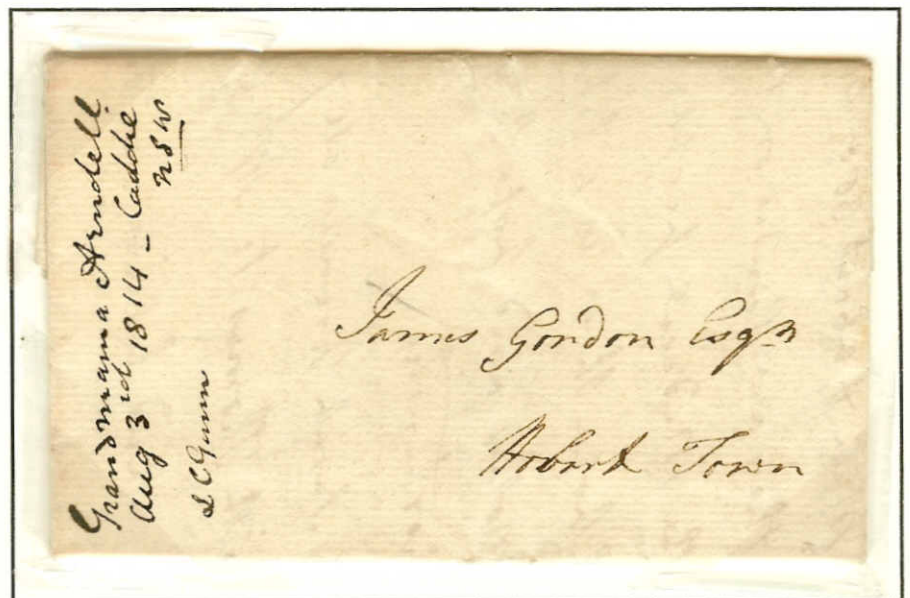 Grandmama Arndell
Aug 3rd 1814 – Caddie
NSW
L C Gunn
James Gordon Esqr
Hobart Town